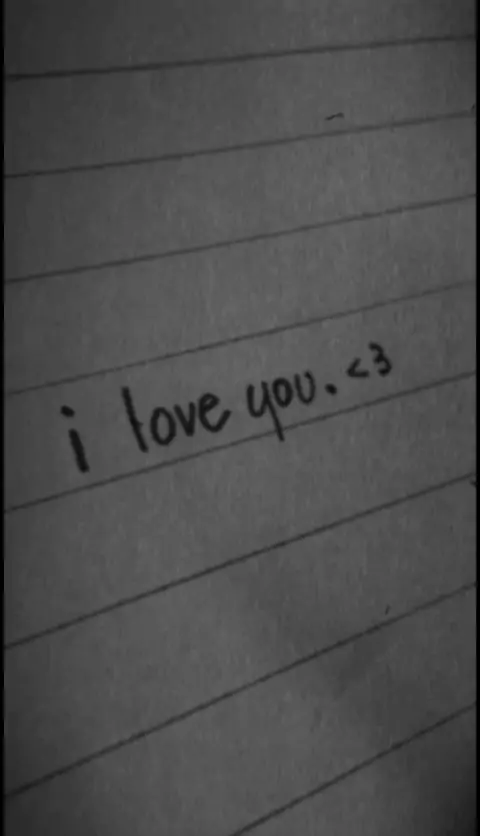 i love you. <3